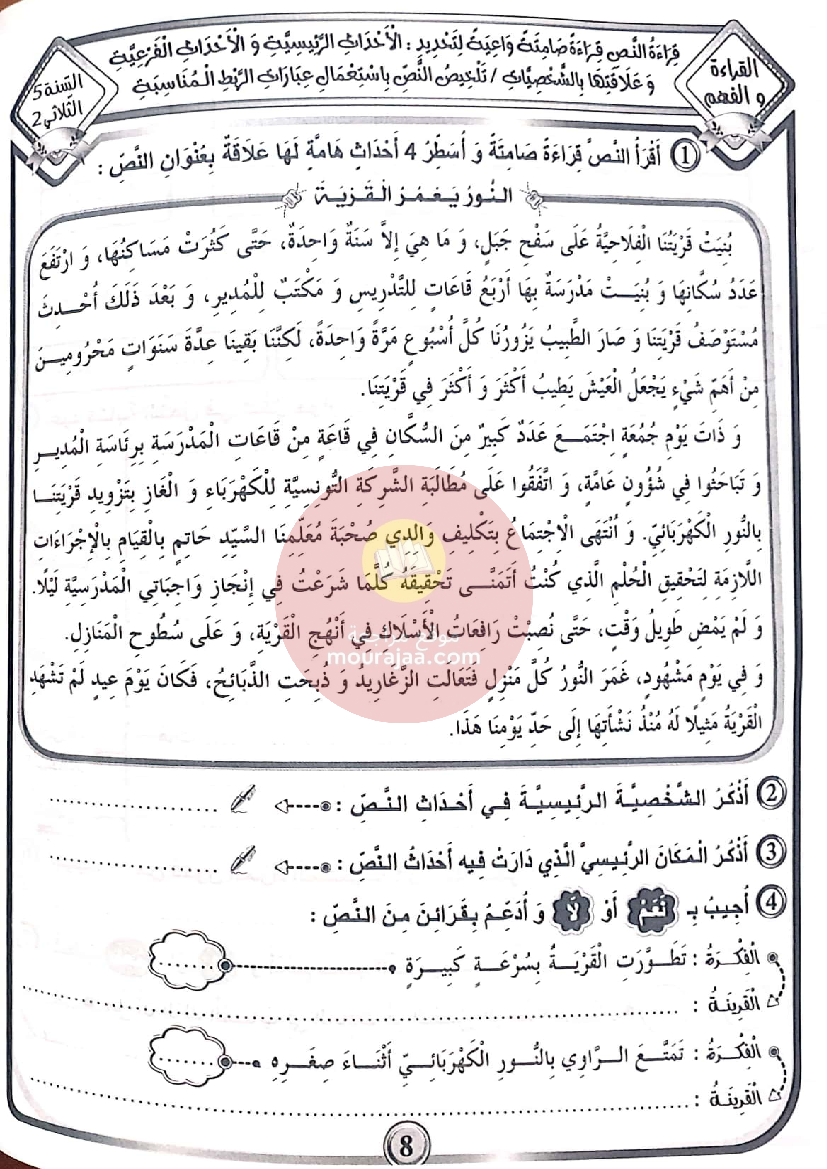 قِرَاءَةُ النَّصِ قِرَاءَةً صَامِتَةً وَاعِيَةً لِتَحْدِيدِ : الْأَحْدَاثِ الرَّئِيسِيَّةِ وَ الْأَحْدَاثِ الْفَرْعِيَّةِ
وَ عَلَاقَتِهَا بِالشَّخْصِيَّاتِ / تَلْخِيصُ النَّصِّ بِاسْتِعْمَالِ عِبَارَاتِ الرَّبْطِ الْمُنَاسِبَةِ
القراءة
و الفهم
السّنة 5
الثّلاثي 2
1 أَقْرَأُ النَّصَّ قِرَاءَةً صَامِتَةً وَ أُسَطِّرُ 4 أَحْدَاثٍ هَامَّةٍ لَهَا عَلَاقَةٌ بِعُنْوَانِ النَّصِّ :
النُّورُ يَغْمُرُ الْقَرْيَةَ
بُنِيَتْ قَرْيَتُنَا الْفَلَاحِيَّةُ عَلَى سَفْحِ جَبَلٍ، وَ مَا هِيَ إِلاَّ سَنَةٌ وَاحِدَةٌ، حَتَّى كَثُرَتْ مَسَاكِنُهَا، وَ ارْتَفَعَ
عَدَدُ سُكَّانِهَا وَ بُنِيَتْ مَدْرَسَةٌ بِهَا أَرْبَعُ قَاعَاتٍ لِلتَّدْرِيسِ وَ مَكْتَبٌ لِلْمُدِيرِ، وَ بَعْدَ ذَلِكَ أُحْدِثَ
مُسْتَوْصَفُ قَرْيَتِنَا وَ صَارَ الطَّبِيبُ يَزُورُنَا كُلَّ أُسْبُوعٍ مَرَّةً وَاحِدَةً، لَكِنَّنَا بَقِينَا عِدَّةَ سَنَوَاتٍ مَحْرُومِينَ
مِنْ أَهَمِّ شَيْءٍ يَجْعَلُ الْعَيْشَ يَطِيبُ أَكْثَرَ وَ أَكْثَرَ فِي قَرْيَتِنَا.
وَ ذَاتَ يَوْمِ جُمُعَةٍ اِجْتَمَعَ عَدَدٌ كَبِيرٌ مِنَ السُّكَّانِ فِي قَاعَةٍ مِنْ قَاعَاتِ الْمَدْرَسَةِ بِرِئَاسَةِ الْمُدِيرِ
وَ تَبَاحَثُوا فِي شُؤُونٍ عَامَّةٍ، وَ اتَّفَقُوا عَلَى مُطَالَبَةِ الشَّرِكَةِ التُّونِسِيَّةِ لِلْكَهْرَبَاءِ وَ الْغَازِ بِتَزْوِيدِ قَرْيَتِنَا
بِالنُّورِ الْكَهْرَبَائِيِّ. وَ أَنْتَهَى الْاِجْتِمَاعُ بِتَكْلِيفِ وَالِدِي صُحْبَةَ مُعَلِّمِنَا السَّيِّدِ حَاتِمٍ بِالْقِيَامِ بِالْإِجْرَاءَاتِ
اللَّازِمَةِ لِتَحْقِيقِ الْحُلْمِ الَّذِي كُنْتُ أَتَمَنَّى تَحْقِيقَهُ كُلَّمَا شَرَعْتُ فِي إِنْجَازِ وَاجِبَاتِي الْمَدْرَسِيَّةِ لَيْلًا.
وَ لَمْ يَمْضِ طَوِيلُ وَقْتٍ، حَتَّى نُصِبَتْ رَافِعَاتُ الْأَسْلَاكِ فِي أَنْهُجِ الْقَرْيَةِ، وَ عَلَى سُطُوحِ الْمَنَازِلِ.
وَ فِي يَوْمٍ مَشْهُودٍ، غَمَرَ النُّورُ كُلَّ مَنْزِلٍ فَتَعَالَتِ الزَّغَارِيدُ وَ ذُبِحَتِ الذَّبَائِحُ، فَكَانَ يَوْمَ عِيدٍ لَمْ تَشْهَدِ
الْقَرْيَةُ مَثِيلًا لَهُ مُنْذُ نَشْأَتِهَا إِلَى حَدِّ يَوْمِنَا هَذَا.
موقع مراجعة
mourajaa.com
2 أَذْكُرُ الشَّخْصِيَّةَ الرَّئِيسِيَّةَ فِي أَحْدَاثِ النَّصِّ : ....................
3 أَذْكُرُ الْمَكَانَ الرَّئِيسِيَّ الَّذِي دَارَتْ فِيهِ أَحْدَاثُ النَّصِّ : ....................
4 أُجِيبُ بِـ نَعَمْ أَوْ لَا وَ أُدَعِّمُ بِقَرَائِنَ مِنَ النَّصِّ :
الْفِكْرَةُ : تَطَوَّرَتِ الْقَرْيَةُ بِسُرْعَةٍ كَبِيرَةٍ ........
الْقَرِينَةُ : ........................................
الْفِكْرَةُ : تَمَتَّعَ الرَّاوِي بِالنُّورِ الْكَهْرَبَائِيِّ أَثْنَاءَ صِغَرِهِ ........
الْقَرِينَةُ : ........................................
8